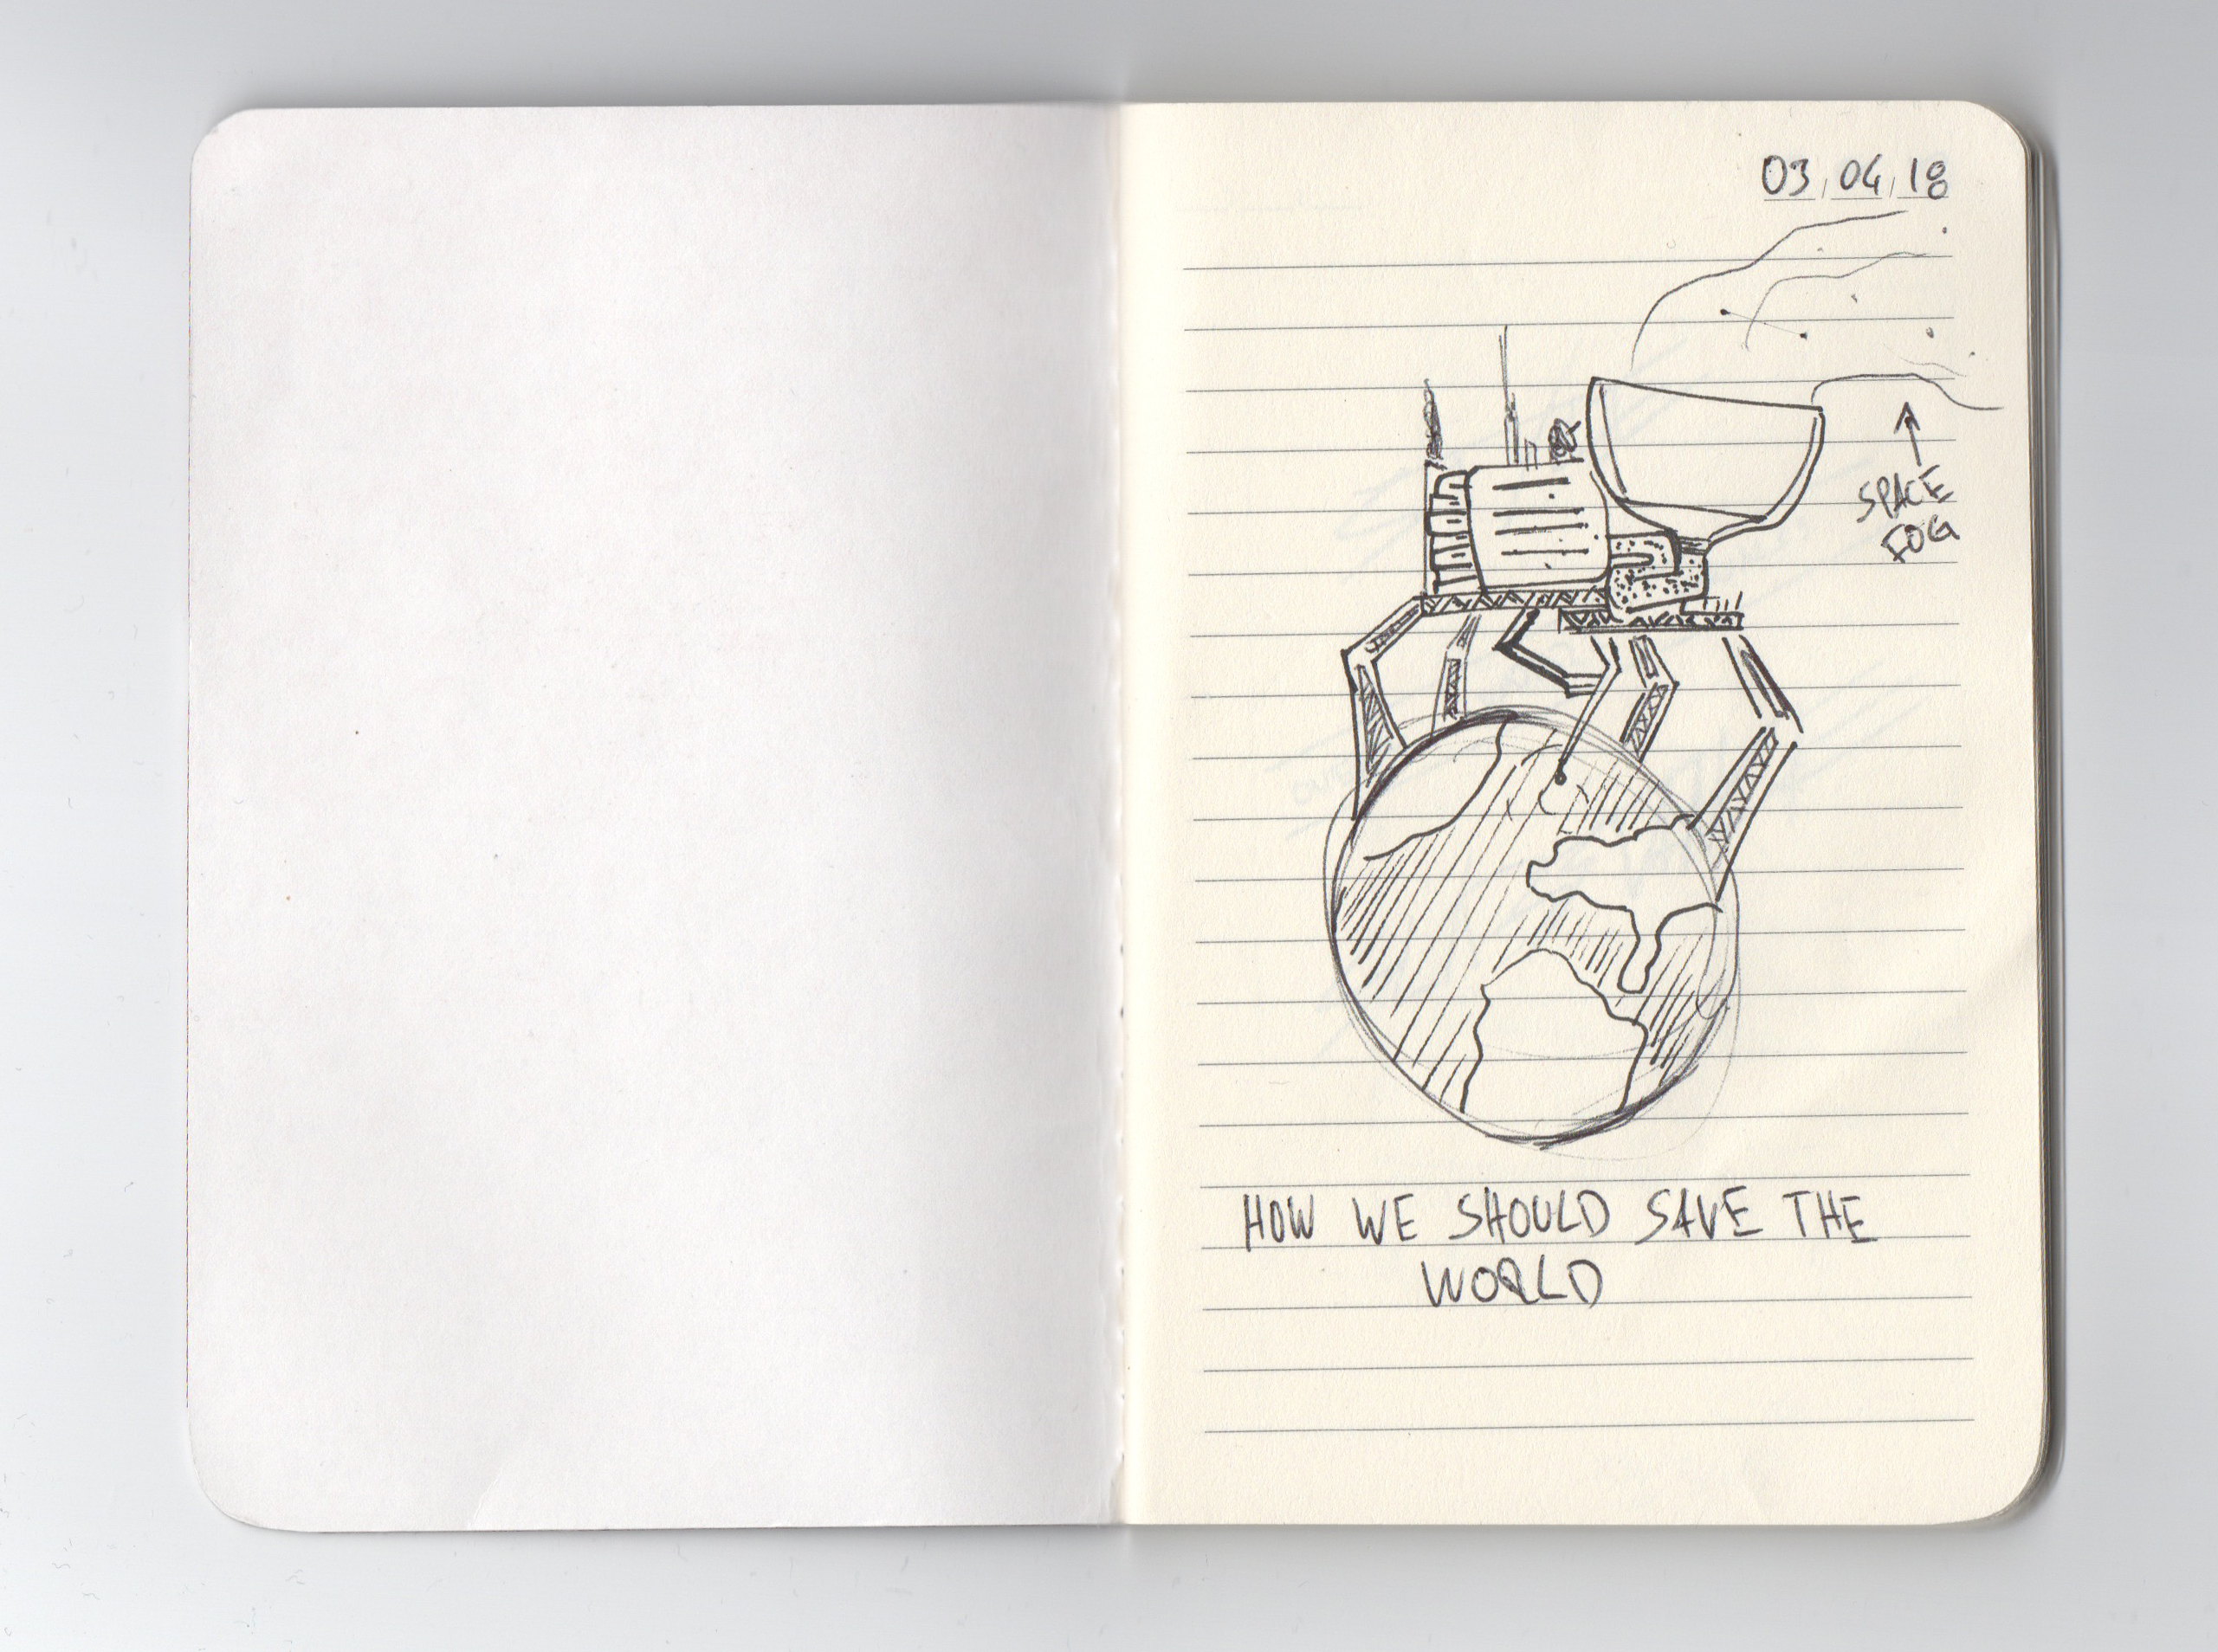 03.04.18
SPACE
FOG
HOW WE SHOULD SAVE THE
WORLD